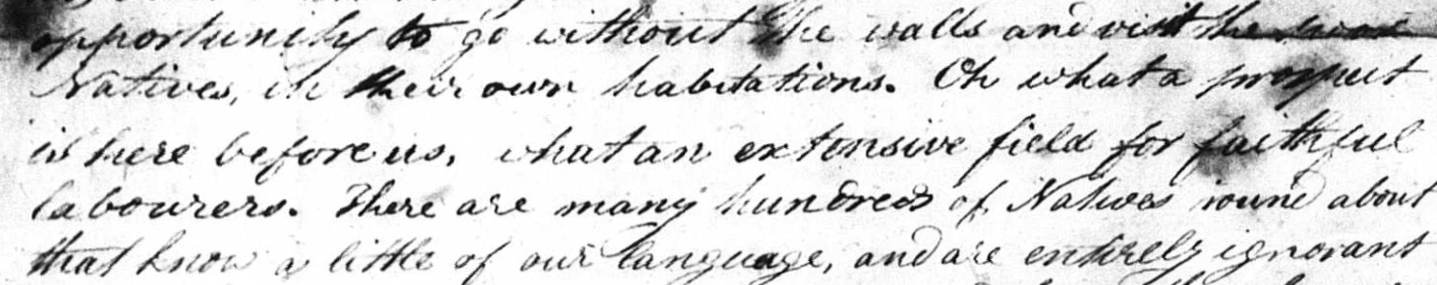 opportunity to go without the walls and visit the
Natives, in their own habitations. Oh what a prospect
is here before us, what an extensive field for faithful
labourers. There are many hundreds of Natives round about
that know a little of our language, and are entirely ignorant